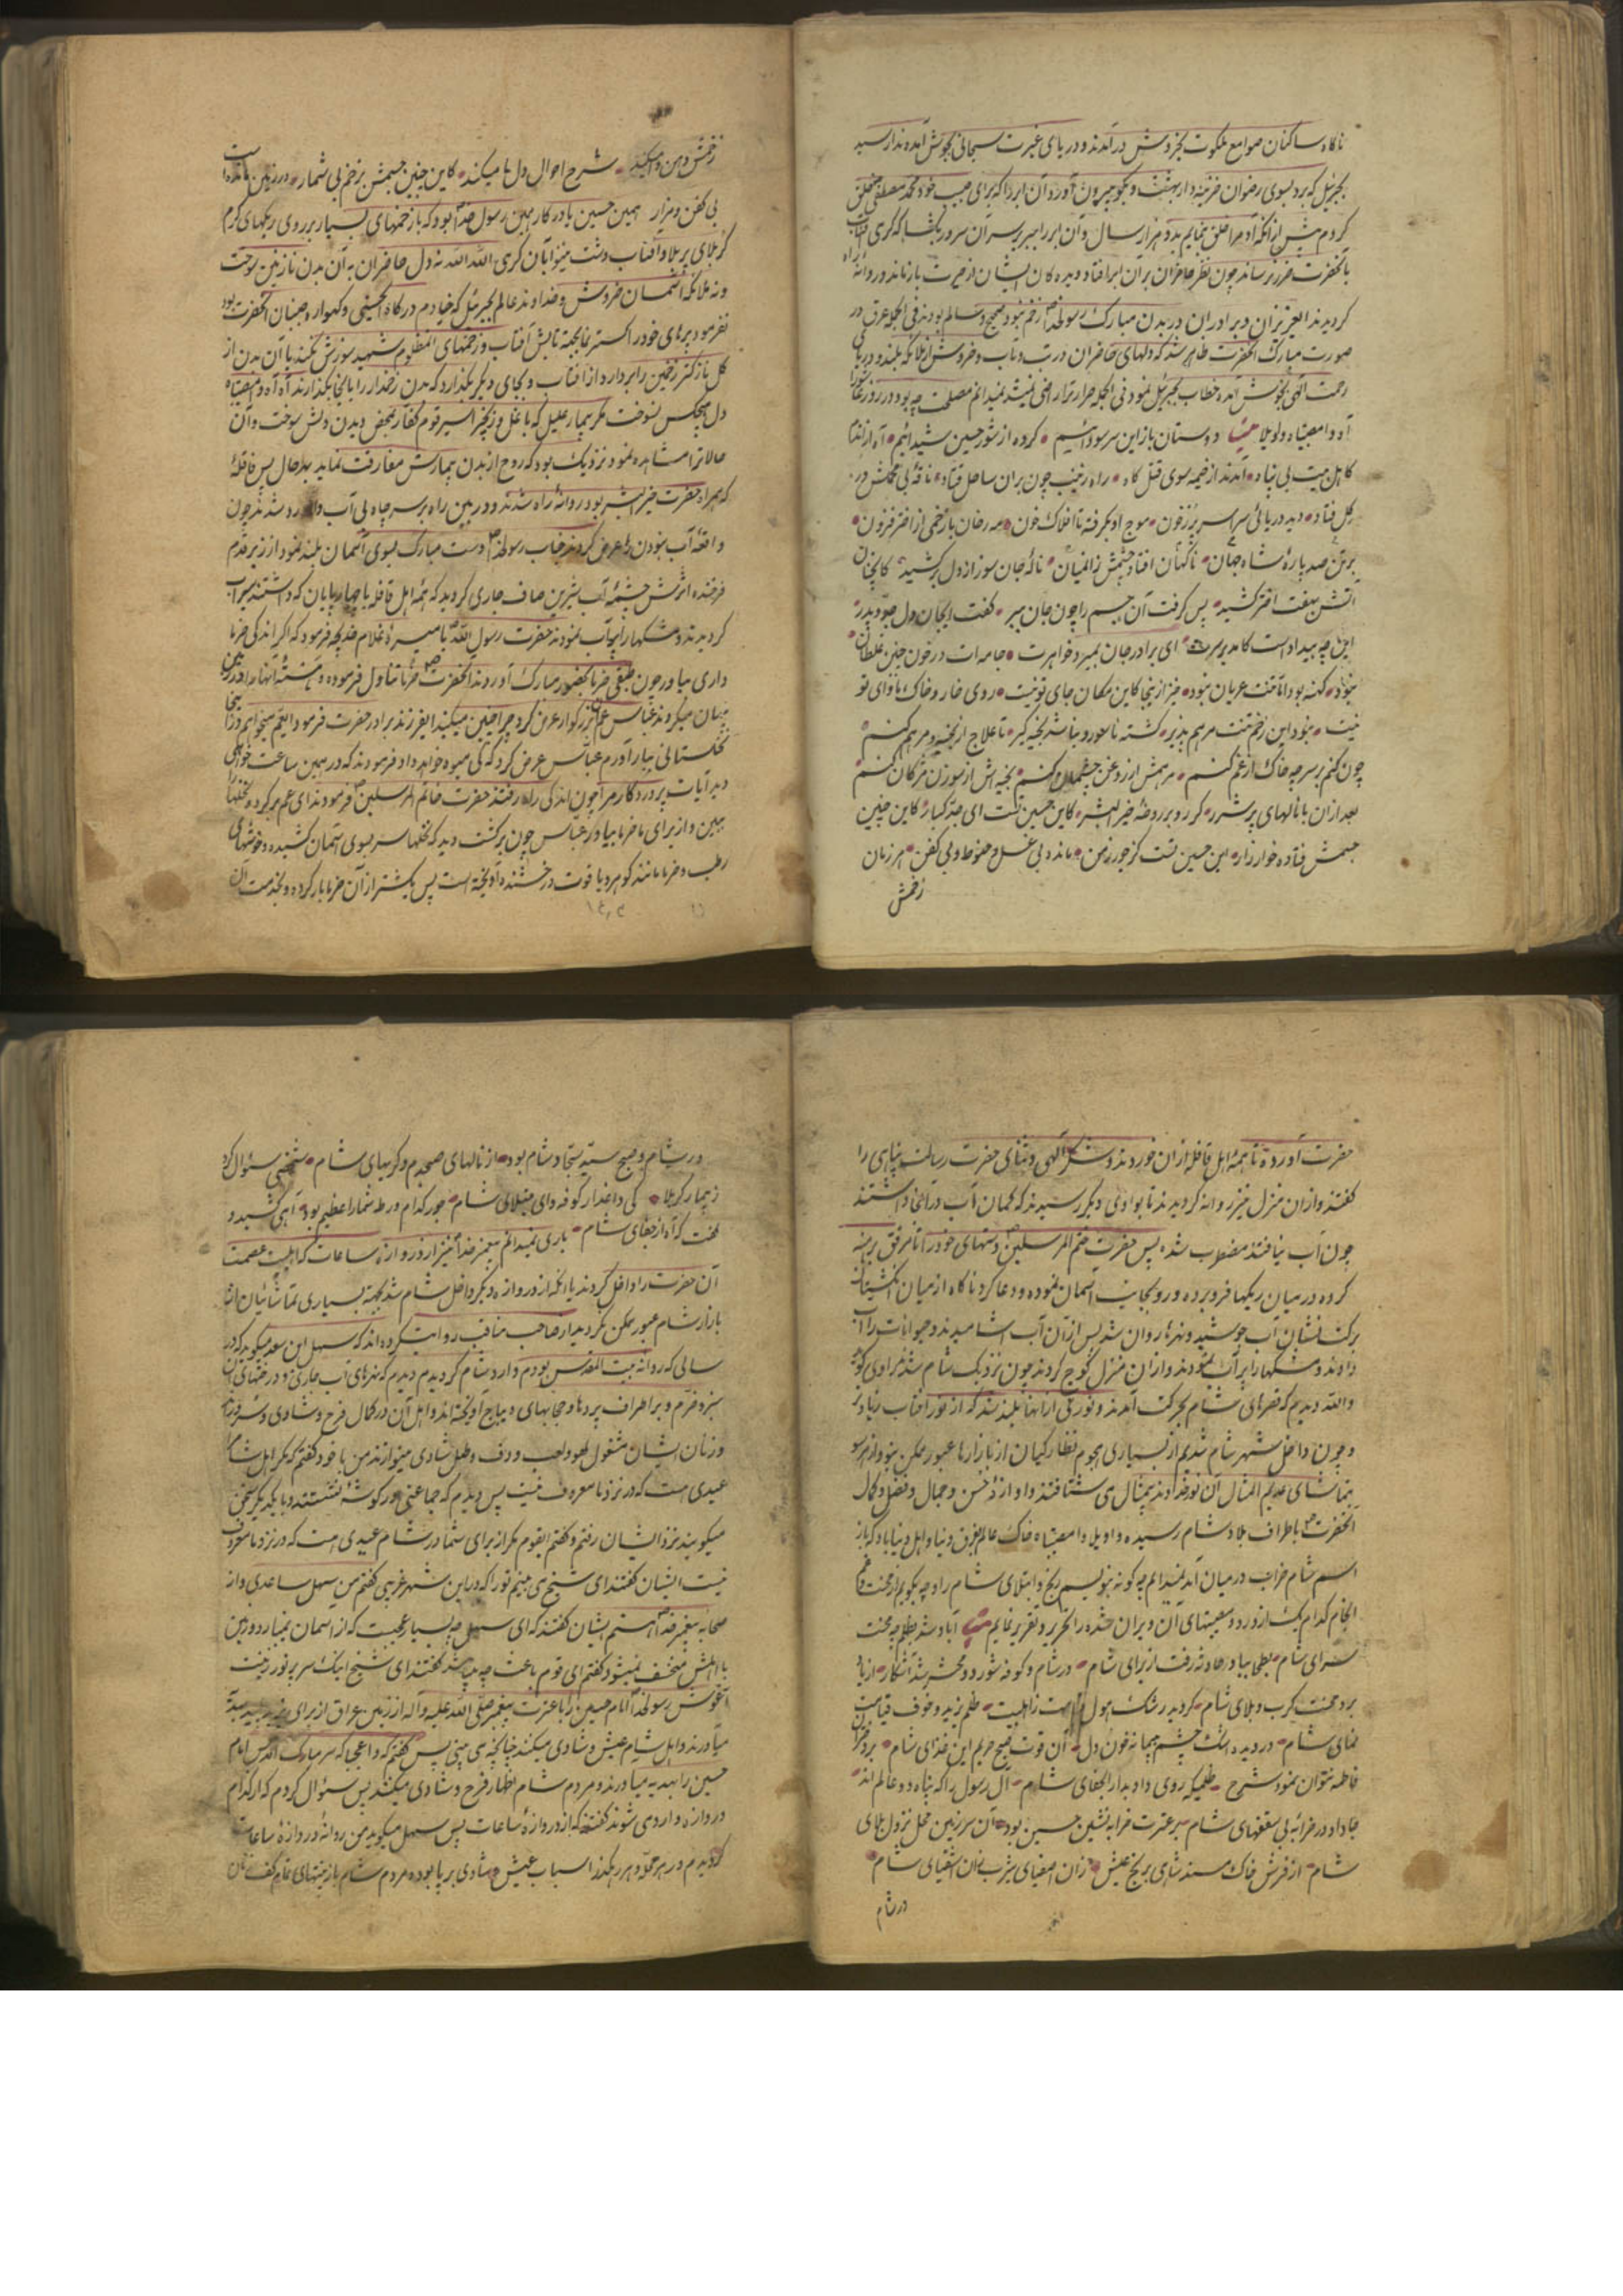 ناگاه ساکنان صوامع ملکوت بخروش در آمدند و دریای غیرت سبحانی بجوش آمده ندا رسید
بجبرئیل که برو بسوی رضوان خزینه دار بهشت و بگو بیرون آورد آن ابر را که برای حبیب خود محمد مصطفی خلق
کردم پیش از آنکه آدم را خلق نمایم بدو هزار سال و آن ابر را ببر بر سر آن سرور بگشا که گرمی آفتاب
بآنحضرت ضرر نرساند چون نظر حاضران بران ابر افتاد دیده کان ایشان از حیرت باز ماند و روانه راه
گردیدند ایعزیزان و برادران در بدن مبارک رسولخدا زخم نبود صحیح و سالم بودند فی الجمله عرق در
صورت مبارک آنحضرت ظاهر شد که دلهای حاضران در تب و تاب و خروش از ملائکه بلند و دریای
رحمت الهی بجوش آمده خطاب بجبرئیل نمود فی الجمله حرارت را راضی نمیشد نمیدانم مصلحت چه بود در روز عاشورا
آه وا مصیبتاه و اویلا دوستان باز این سر سودائیم کرده از شور حسین شیدائیم آه از اندم
کاهل بیت بی پناه آمدند از خیمه سوی قتل گاه راه زینب چون بران ساحل فتاد ناقه بی محملش در
گل فتاد دید دریائی سراسر پر ز خون موج او بگرفته تا افلاک خون مه رخان با زخمی از اختر فزون
بر تن صد پاره شاه جهان ناگهان افتاد چشمش زان میان ناله جان سوز از دل بر کشید کاینچنان
آتش بهفت اختر کشید پس گرفت آن جسم را چون جان ببر گفت ایجان و دل جد و پدر
این چه بیداد است کامد بر سرت ای برادر جان بمیرد خواهرت جامه ات در خون چنین غلطان
نبود کهنه بود اما تنت عریان نبود خیز از اینجا کاین مکان جای تو نیست روی خار و خاک ماوای تو
نیست نبود این زخم تنت مرهم پذیر کشته ناسور و نباشد بخیه گیر تا علاج از بخیه و مرهم کنم
چون کنم بر سر چه خاک از غم کنم مرهمش از روغن چشمان کنم بخیه اش از سوزن مژگان کنم
بعد ازان با نالهای پر شرر کرد رو بر روضه خیر البشر کاین حسین تست ای جد کبار کاین چنین
جسمش فتاده خوار زار این حسین تست کز جور زمن مانده بی غسل و حنوط و بی کفن هر زمان
زخمش
زخمش دهن وا میکند شرح احوال دل ما میکند کاین چنین جسمش ز زخم بی شمار در زمین مانده است
بی کفن و مزار همین حسین یادگار همین رسول خدا بود که با زخمهای بسیار بر روی ریگهای گرم
کربلای پر بلا و آفتاب دشت نینوا بآن گرمی الله الله نه دل حاضران به آن بدن نازنین سوخت
و نه ملائکه آسمان خروش و خداوند عالم بجبرئیل که خادم درگاه الحسینی و گهواره جنبان آنحضرت بود
نفرمود پرهای خود را گستر نمای بجهة تابش آفتاب و زخمهای المظلوم شهید سوزش نکند یا آن بدن از
گل نازکتر زخمین را بردارد از آفتاب و بجای دیگر بگذارد که بدن زخمدار را باینجا بگذارند آه آه وا مصیبتاه
دل هیچکس نسوخت مگر بیمار علیل که با غل و زنجیر اسیر قوم کفار بمحض دیدن دلش سوخت و آن
حالت را مشاهده نمود نزدیک بود که روح از بدن بیمارش مفارقت نماید بهر حال پس قافله
که همراه حضرت خیر البشر بود روانه راه شدند و در بین راه بر سر چاه بی آب وارد شدند چون
واقعه آب نبودن را عرض کردند جناب رسولخدا دست مبارک بسوی آسمان بلند نمود از زیر قدم
فرخنده اثرش چشمه آب شیرین صاف جاری گردید که همه اهل قافله با چهارپایان که داشتند سیراب
گردیدند و مشکها را پر آب نمودند حضرت رسول الله با میسره غلام خدیجه فرمود که اگر اندکی خرما
داری بیاور چون طبقی خرما بحضور مبارک آوردند آنحضرت خرما تناول فرموده و هسته آنها را در زمین
پنهان میکردند عباس عم بزرگوار عرض کرد چرا چنین میکنید ایفرزند برادر حضرت فرمود ایعم میخواهم در اینجا
نخلستانی بیار آورم عباس عرض کرد که کی میوه خواهد داد فرمودند که در همین ساعت خواهی
دید آیات پروردگار مرا چون اندکی راه رفتند حضرت خاتم المرسلین فرمودند ای عم برگرد و نخلها را
ببین و از برای ما خرما بیاور عباس چون برگشت دید که نخلها سر بسوی آسمان کشیده و خوشهای
رطب و خرما مانند گوهر و یاقوت درخشنده آویخته است پس یکشتر از آن خرما بار کرده و بخدمت آن
حضرت آورده تا همه اهل قافله از ان خوردند و شکر الهی و ثنای حضرت رسالت پناهی را
گفتند و از ان منزل نیز روانه گردیدند تا بوادی دیگر رسیدند که گمان آب در آنجا داشتند
چون آب نیافتند مضطرب شده پس حضرت ختم المرسلین دستهای خود را تا مرفق برهنه
کرده در میان ریگها فرو برده و رو بجانب آسمان نموده و دعا کرد ناگاه از میان انگشتان
برکت نشان آب جوشید و نهرها روان شد پس از آن آب آشامیدند و حیوانات را آب
دادند و مشکها را پر آب نمودند و از ان منزل کوچ کردند چون نزدیک شام شدند راوی گوید
والله دیدیم که قصرهای شام بحرکت آمدند و نوری از آنها بلند شد که از نور آفتاب زیادتر
و چون داخل شهر شام شدیم از بسیاری هجوم نظارگیان از بازارها عبور ممکن نبود و از هر سو
بتماشای عدیم المثال آن نور خداوند بیمثال می شتافتند و آوازه حسن و جمال و فضل و کمال
آنحضرت باطراف بلاد شام رسیده واویلا وا مصیبتاه خاک عالم بفرق دنیا و اهل دنیا باد که باز
اسم شام خراب در میان آمد نمیدانم چه گونه بنویسم رنج و ابتلای شام را و چه بگویم از محنت و غم
انجام کدام یک از درد و مصیبتهای آن ویران شده را تحریر و تقریر نمایم آباد شد بظلم چه محنت
سرای شام بطحی بباد حادثه رفت از برای شام در شام و کوفه شور دو محشر شد آشکار از یاد
برد محنت کرب و بلای شام گردید رشک هول قیامت ز اهلبیت ظلم یزید و خوف قیامت
نمای شام در دیده اشک چشم پیمانه خون دل آن قوت صبح حریم این غذای شام بر دختران
فاطمه نتوان نمود شرح ظلمیکه روی داد بدار الجفای شام آل رسول را که پناه دو عالم اند
جا داد در خرابه بی سقفهای شام سر عترت خرابه نشین حسین بود آن سرزمین محل نزول بلای
شام از فرش خاک مسند شاهی بکنج عیش زان اصفیای یثرب زان اشقیای شام
در شام
در شام و صبح سید سجاد شام بود از نالهای صبحدم و گریهای شام شخصی سئوال کرد
ز بیمار کربلا کی داغدار کوفه و ای مبتلای شام جور کدام ورطه شما را عظیم بود آهی کشید و
گفت که آه از جفای شام باری نمیدانم پیغمبر خدا نیز از دروازه ساعات که اهلبیت عصمت
آن حضرت را داخل کردند یا آنکه از دروازه دیگر داخل شام شد بجهة بسیاری تماشائیان از
بازار شام عبور ممکن نگردید از صاحب مناقب روایت کرده اند که سهل ابن سعد میگوید که در
سالی که روانه بیت المقدس بودم وارد شام گردیدم دیدم که نهرهای آب جاری و درختهای آن
سبز و خرم و بر اطراف پردها و حجابهای دیباج آویخته اند و اهل آن در کمال فرح و شادی و سرورند
و زنان ایشان مشغول لهو و لعب و دف و طبل شادی مینوازند من با خود گفتم که مگر اهل شام
عیدی است که در نزد ما معروف نیست پس دیدم که جماعتی در گوشه نشستند و با یکدیگر سخن
میگویند نزد ایشان رفتم و گفتم ایقوم مگر از برای شما در شام عیدی است که در نزد ما معروف
نیست ایشان گفتند ای شیخ می بینم تو را که در این شهر غریبی گفتم من سهل ساعدی و از
صحابه پیغمبر خدا هستم ایشان گفتند که ای سهل چه بسیار عجبست که از آسمان نمیبارد و زمین
با اهلش منخسف نمیشود گفتم ای قوم باعث چه میباشد گفتند ای شیخ اینک سر پر نور زینت
آغوش رسولخدا امام حسین را با عترت پیغمبر صلی الله علیه و آله از زمین عراق از برای یزید پلید هدیه
میآورند و اهل شام عیش و شادی میکنند چنانچه می بینی پس گفتم که وا عجبا که سر مبارک اقدس امام
حسین را بهدیه میآورند و مردم شام اظهار فرح و شادی میکنند پس سئوال کردم که از کدام
دروازه وارد می شوند گفتند که از دروازه ساعات پس سهل میگوید من روانه دروازه ساعات
گردیدم در هر محله و هر رهگذر اسباب عیش و شادی بر پا بوده مردم شام با زینتهای تمام کف زنان